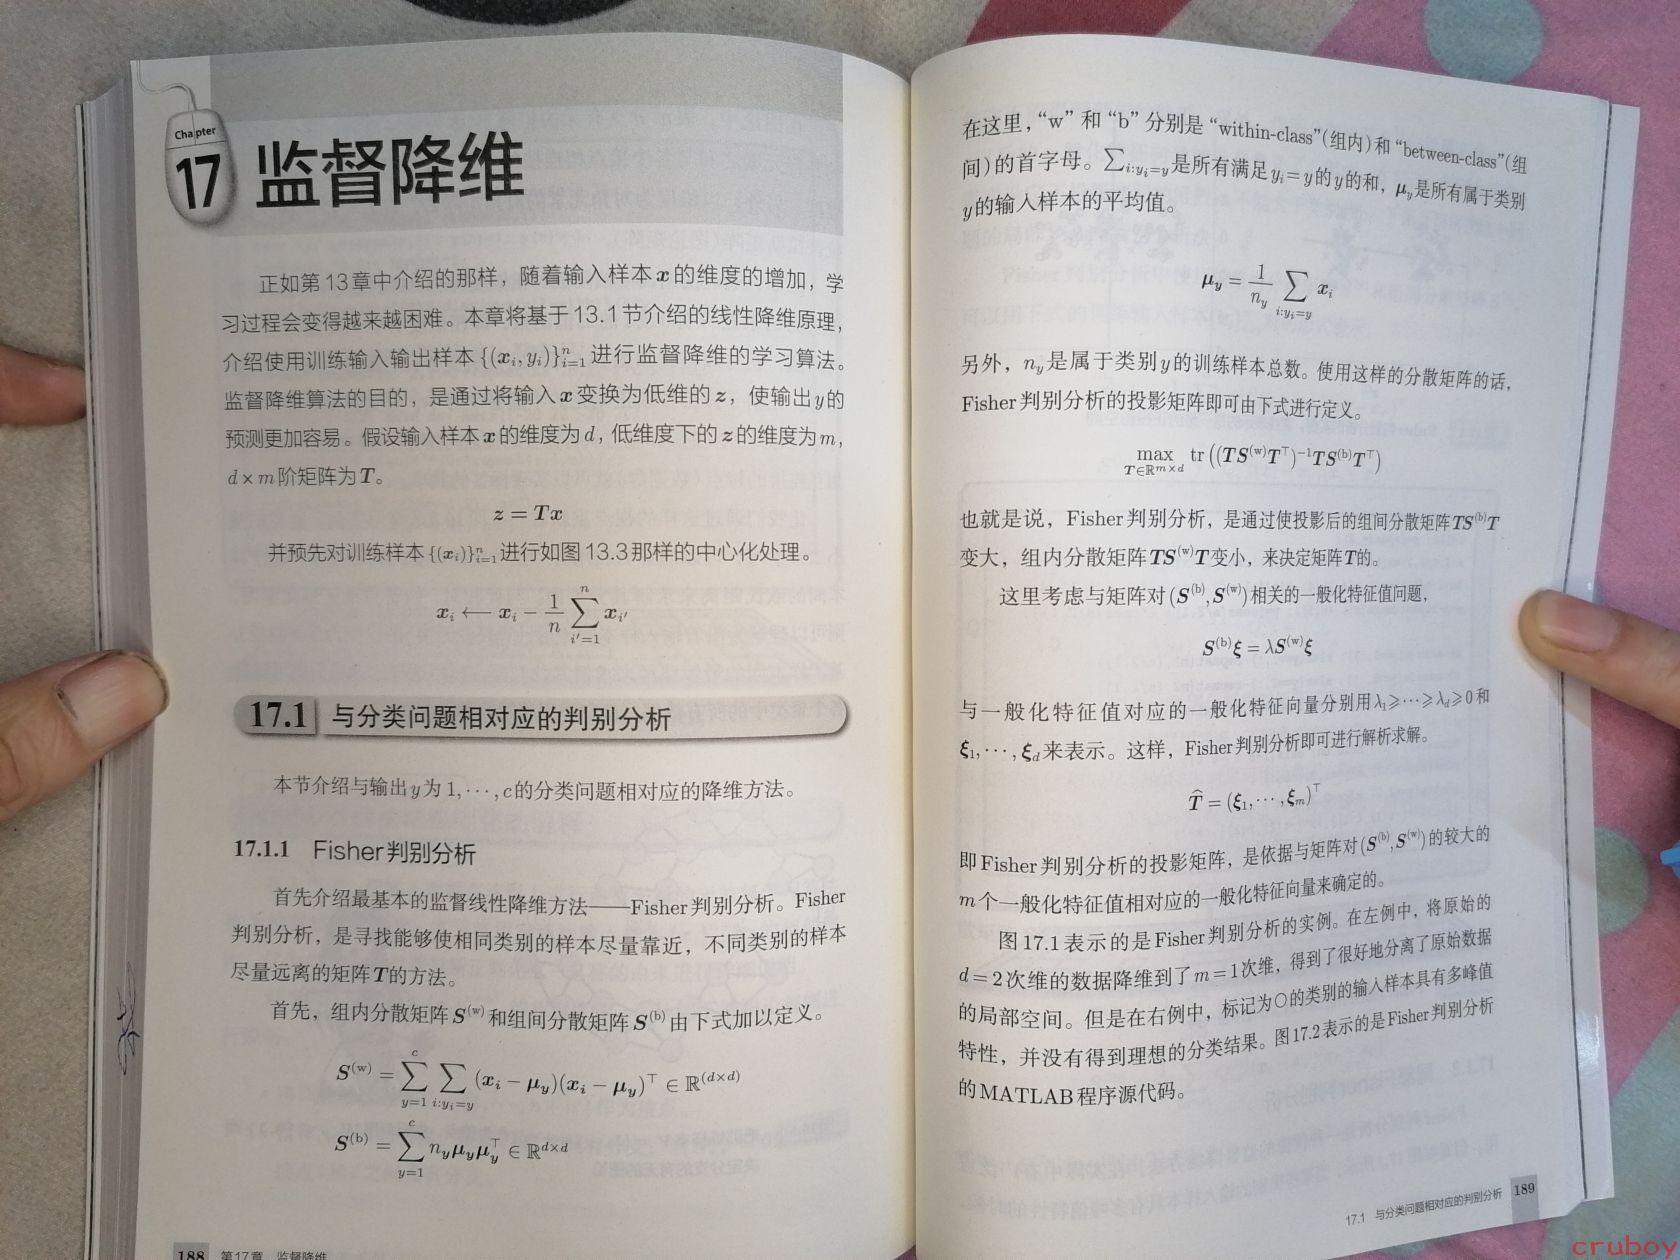 Chapter
17 监督降维
正如第13章中介绍的那样，随着输入样本 x 的维度的增加，学
习过程会变得越来越困难。本章将基于13.1节介绍的线性降维原理，
介绍使用训练输入输出样本 {(xᵢ, yᵢ)}ⁿᵢ₌₁ 进行监督降维的学习算法。
监督降维算法的目的，是通过将输入 x 变换为低维的 z，使输出 y 的
预测更加容易。假设输入样本 x 的维度为 d，低维度下的 z 的维度为 m，
d × m 阶矩阵为 T。
z = Tx
并预先对训练样本 {(xᵢ)}ⁿᵢ₌₁ 进行如图13.3那样的中心化处理。
xᵢ ⟵ xᵢ − 1/n ∑ⁿᵢ′₌₁ xᵢ′
17.1 与分类问题相对应的判别分析
本节介绍与输出 y 为 1, ⋯, c 的分类问题相对应的降维方法。
17.1.1 Fisher判别分析
首先介绍最基本的监督线性降维方法——Fisher判别分析。Fisher
判别分析，是寻找能够使相同类别的样本尽量靠近，不同类别的样本
尽量远离的矩阵 T 的方法。
首先，组内分散矩阵 S⁽ʷ⁾ 和组间分散矩阵 S⁽ᵇ⁾ 由下式加以定义。
S⁽ʷ⁾ = ∑_{y=1}^{c} ∑_{i:yᵢ=y} (xᵢ − μ_y)(xᵢ − μ_y)^⊤ ∈ ℝ^{(d×d)}
S⁽ᵇ⁾ = ∑_{y=1}^{c} n_y μ_y μ_y^⊤ ∈ ℝ^{d×d}
188 第17章 监督降维
在这里，“w” 和 “b” 分别是 “within-class”(组内)和 “between-class”(组
间)的首字母。∑_{i:yᵢ=y} 是所有满足 yᵢ = y 的 y 的和，μ_y 是所有属于类别
y 的输入样本的平均值。
μ_y = 1/n_y ∑_{i:yᵢ=y} xᵢ
另外，n_y 是属于类别 y 的训练样本总数。使用这样的分散矩阵的话，
Fisher判别分析的投影矩阵即可由下式进行定义。
max_{T∈ℝ^{m×d}} tr((TS⁽ʷ⁾T^⊤)⁻¹TS⁽ᵇ⁾T^⊤)
也就是说，Fisher判别分析，是通过使投影后的组间分散矩阵 TS⁽ᵇ⁾T
变大，组内分散矩阵 TS⁽ʷ⁾T 变小，来决定矩阵 T 的。
这里考虑与矩阵对 (S⁽ᵇ⁾, S⁽ʷ⁾) 相关的一般化特征值问题，
S⁽ᵇ⁾ξ = λS⁽ʷ⁾ξ
与一般化特征值对应的一般化特征向量分别用 λ₁ ⩾ ⋯ ⩾ λ_d ⩾ 0 和
ξ₁, ⋯, ξ_d 来表示。这样，Fisher判别分析即可进行解析求解。
T̂ = (ξ₁, ⋯, ξ_m)^⊤
即Fisher判别分析的投影矩阵，是依据与矩阵对 (S⁽ᵇ⁾, S⁽ʷ⁾) 的较大的
m 个一般化特征值相对应的一般化特征向量来确定的。
图17.1表示的是Fisher判别分析的实例。在左例中，将原始的
d = 2 次维的数据降维到了 m = 1 次维，得到了很好地分离了原始数据
的局部空间。但是在右例中，标记为○的类别的输入样本具有多峰值
特性，并没有得到理想的分类结果。图17.2表示的是Fisher判别分析
的MATLAB程序源代码。
17.1 与分类问题相对应的判别分析 189
cruboy